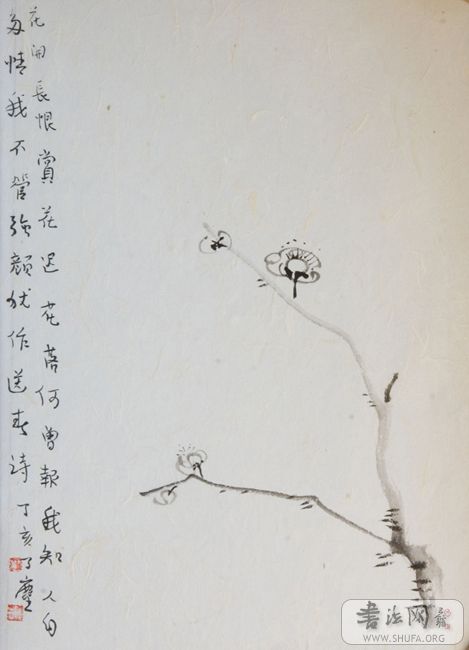 花開長恨賞花迟花落何曾報我知人自
多情我不管強顏猶作送春詩 丁亥了塵
書法网
WWW.SHUFA.ORG